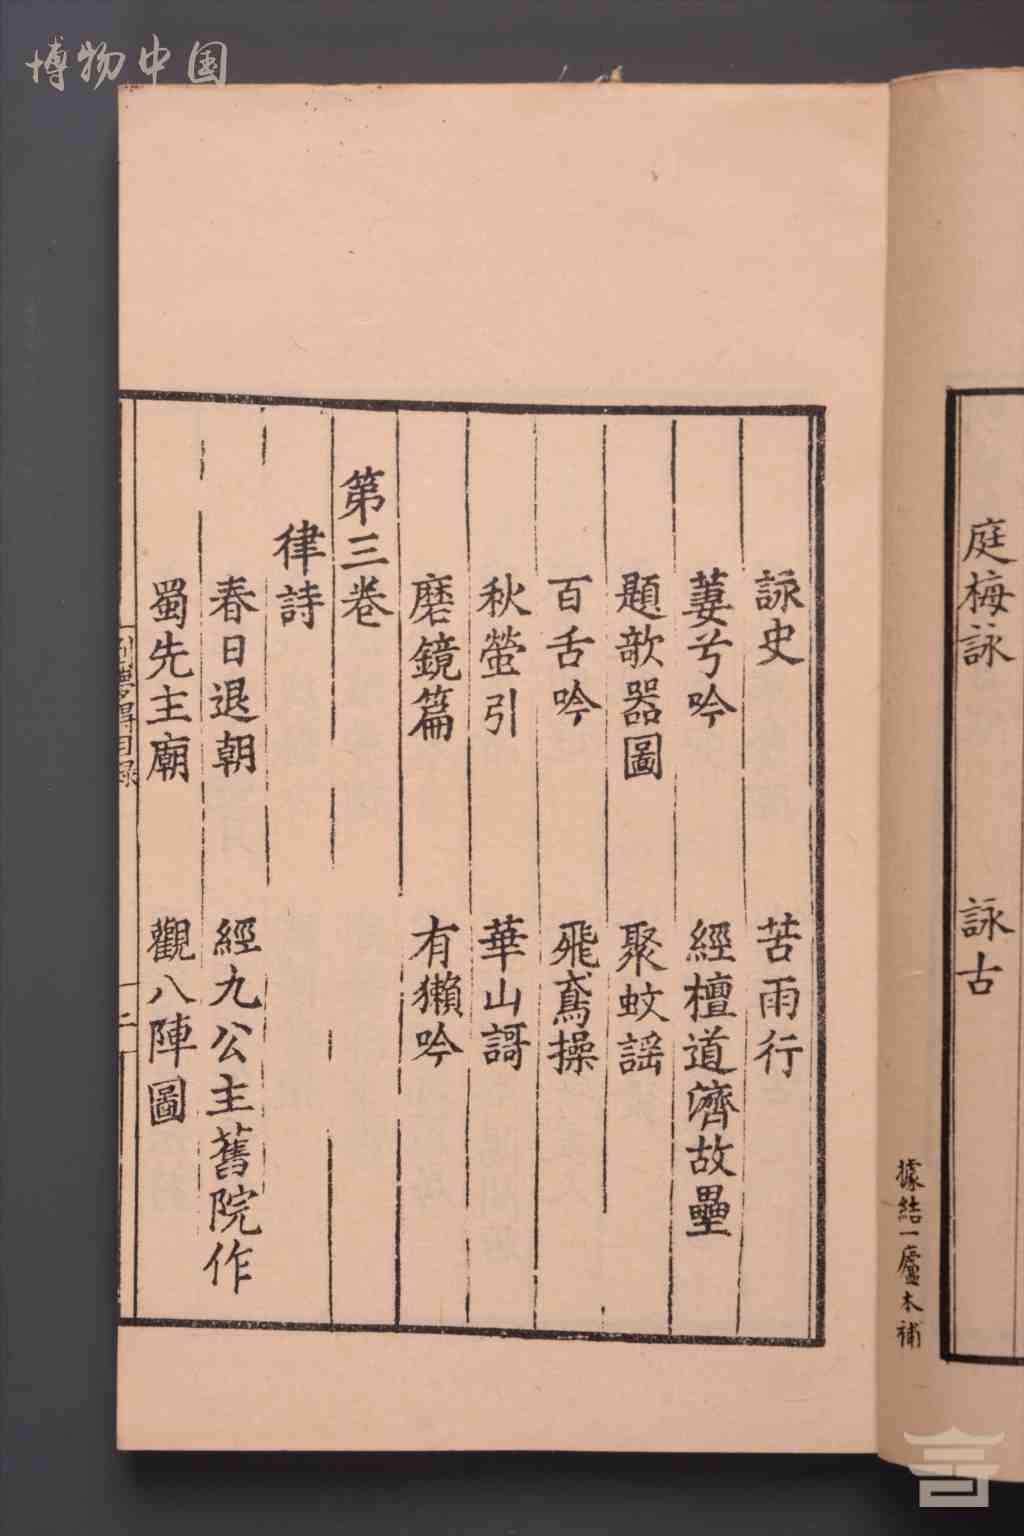 博物中国
庭梅詠 詠古
據結一廬本補
詠史 苦雨行
萋兮吟 經檀道濟故壘
題欹器圖 聚蚊謡
百舌吟 飛鳶操
秋螢引 華山謌
磨鏡篇 有獺吟
第三卷
律詩
春日退朝 經九公主舊院作
蜀先主廟 觀八陣圖